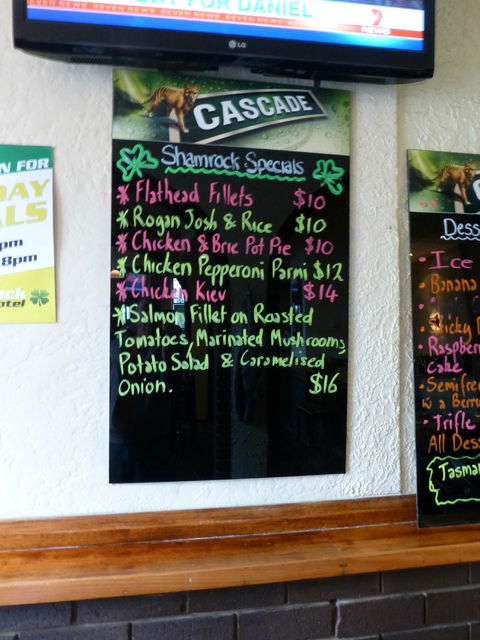 AY FOR DANIEL
SEVEN NEWS SEVEN NEWS SEVEN NEWS
7
NEWS
LG
N FOR
DAY
ALS
pm
8pm
ck
otel
CASCADE
Shamrock Specials
* Flathead Fillets $10
* Rogan Josh & Rice $10
* Chicken & Brie Pot Pie $10
* Chicken Pepperoni Parmi $12
* Chicken Kiev $14
* Salmon Fillet on Roasted
Tomatoes, Marinated Mushrooms,
Potato Salad & Caramelised
Onion. $16
Dess
• Ice
• Banana
• Sticky
• Raspber
Cake
• Semifre
w a Berr
• Trifle
All Des
Tasma